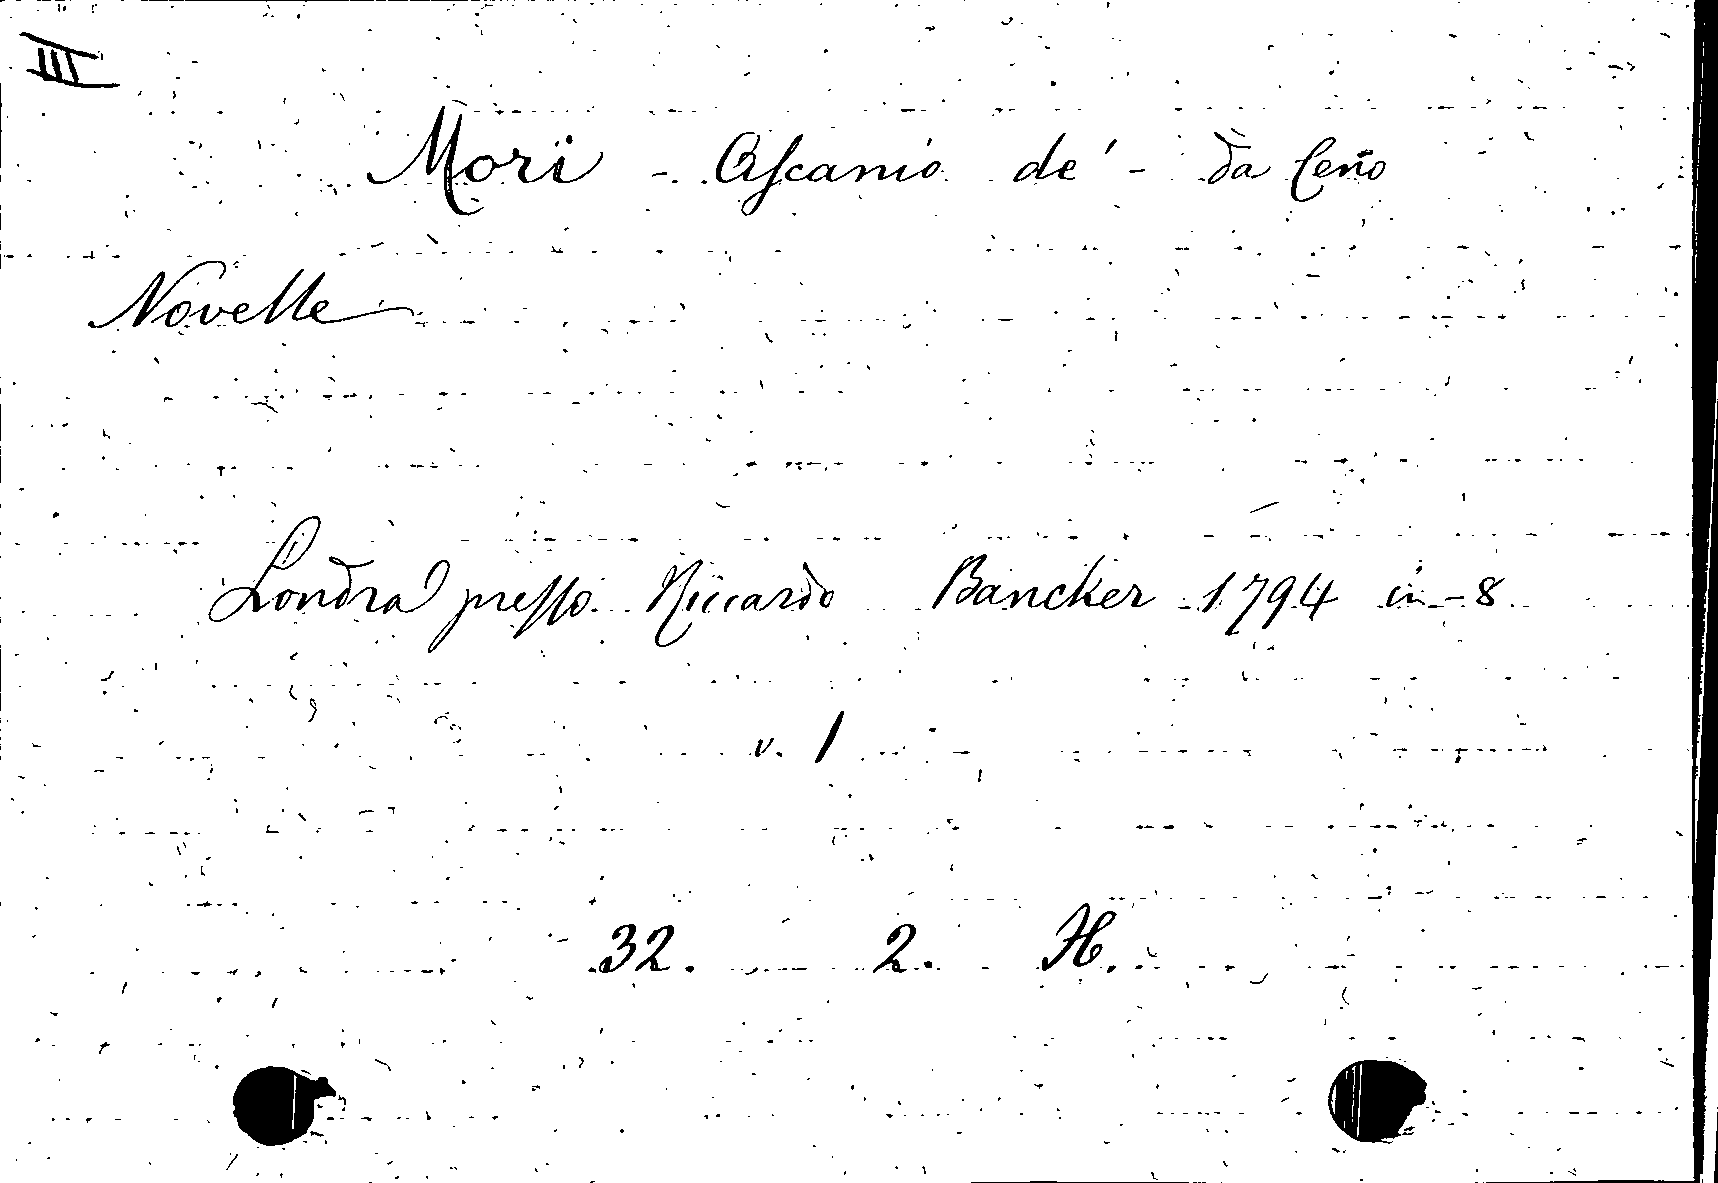 III
Mori - Ascanio de' - da Ceno
Novelle
Londra presso Riccardo Bancker 1794 in-8
v. 1
32. 2. H.